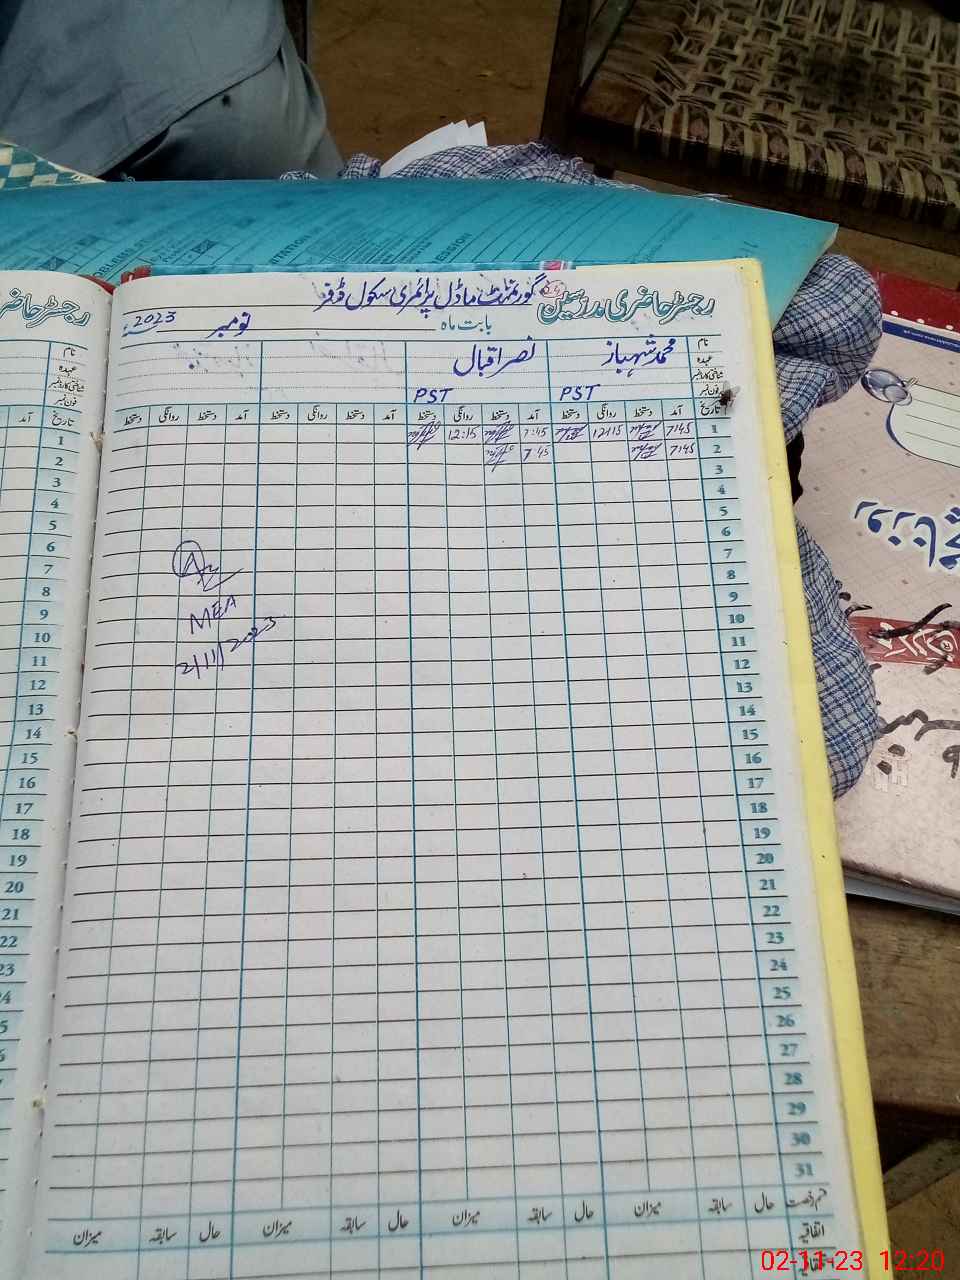 رجسٹر حاضری مدرسین گورنمنٹ ماڈل پرائمری سکول ڈفر
بابت ماہ نومبر 2023ء
نام محمد شہباز نصر اقبال
عہدہ
شناختی کارڈ نمبر PST PST
فون نمبر
تاریخ آمد دستخط روانگی دستخط آمد دستخط روانگی دستخط آمد دستخط روانگی دستخط آمد دستخط روانگی دستخط
1 7:45 12:15 7:45 12:15
2 7:45 7:45
3
4
5
6
7
8
9
10
11
12
13
14
15
16
17
18
19
20
21
22
23
24
25
26
27
28
29
30
31
MEA
2/11/2023
قسم رخصت حال سابقہ میزان حال سابقہ میزان حال سابقہ میزان حال سابقہ میزان
اتفاقیہ
رجسٹر حاضری
نام
عہدہ
شناختی کارڈ نمبر
فون نمبر
تاریخ آمد
1
2
3
4
5
6
7
8
9
10
11
12
13
14
15
16
17
18
19
20
21
22
23
روزنامچہ
02-11-23 12:20